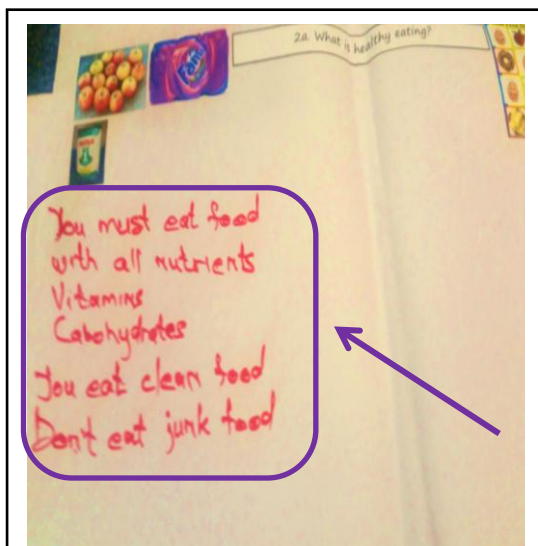 2a. What is healthy eating?
You must eat food
with all nutrients
Vitamins
Cabohydrates
You eat clean food
Don't eat junk food